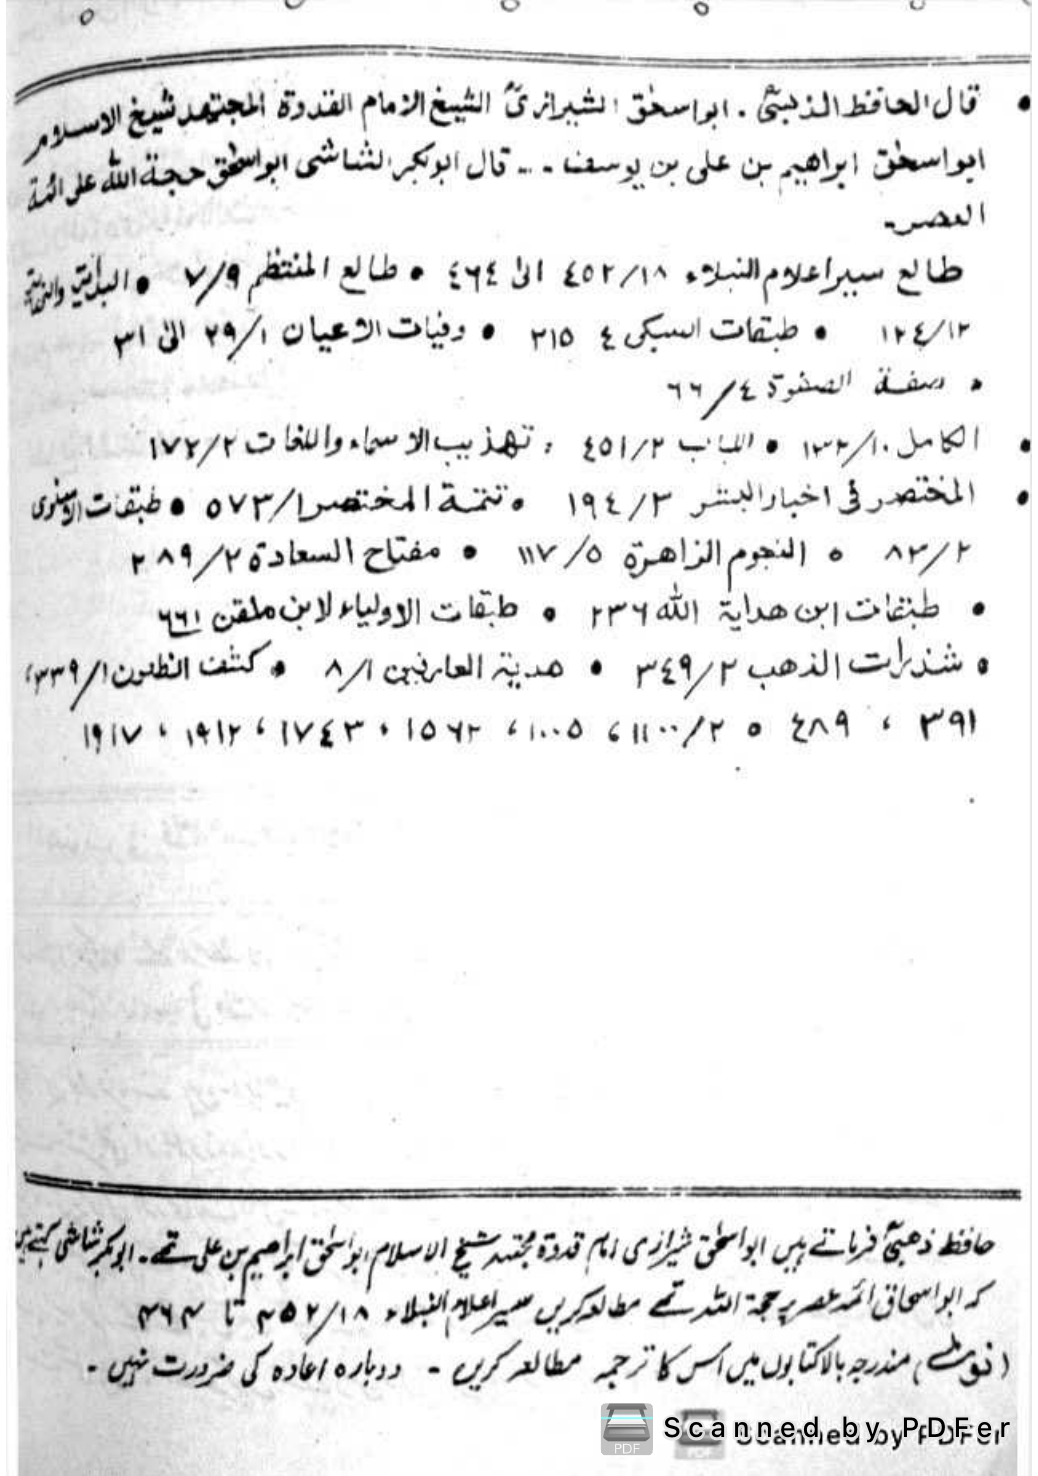 • قال الحافظ الذہبیؒ . ابواسحٰق الشیرازیؒ الشیخ الامام القدوة المجتهد شیخ الاسلام
ابواسحٰق ابراھیم بن علی بن یوسف - .. قال ابوبکر الشاشی ابواسحٰق حجة اللّٰه علی ائمة
العصر-
طالع سیر اعلام النبلاء ٤٥٢/١٨ الیٰ ٤٦٤ • طالع المنتظم ٧/٩ • البدایة والنهایة
١٢٤/١٢ • طبقات السبکی ٤ ٢١٥ • وفیات الاعیان ٢٩/١ الیٰ ٣١
• صفة الصفوة ٦٦/٤
• الکامل ١٣٢/١٠ • اللباب ٤٥١/٢ . تهذیب الاسماء واللغات ١٧٢/٢
• المختصر فی اخبار البشر ١٩٤/٢ • تتمة المختصر ٥٧٣/١ • طبقات الاسنوی
٨٣/٢ • النجوم الزاهرة ١١٧/٥ • مفتاح السعادة ٢٨٩/٢
• طبقات ابن هدایة اللّٰه ٢٣٦ • طبقات الاولیاء لابن ملقن ٦٦١
• شذرات الذهب ٣٤٩/٢ • هدیة العارفین ٨/١ • کشف الظنون ٣٣٩/١،
٣٩١ ، ٤٨٩ • ١١٠٠/٢، ١٠٠٥، ١٥٦٢ ، ١٧٤٣ ، ١٩١٢ ، ١٩١٧
حافظ ذھبیؒ فرماتے ہیں ابواسحٰق شیرازی امام قدوۃ مجتہد شیخ الاسلام ابواسحٰق ابراھیم بن علی تھے - ابوبکر شاشی کہتے ہیں
کہ ابواسحاق ائمہ عصر پر حجۃ اللہ تھے مطالعہ کریں سیر اعلام النبلاء ۴۵۲/۱۸ تا ۴۶۴
(نوٹ) مندرجہ بالا کتابوں میں اس کا ترجمہ مطالعہ کریں - دوبارہ اعادہ کی ضرورت نہیں -
PDF Scanned by PDFer
PDF Scanned by PDFer